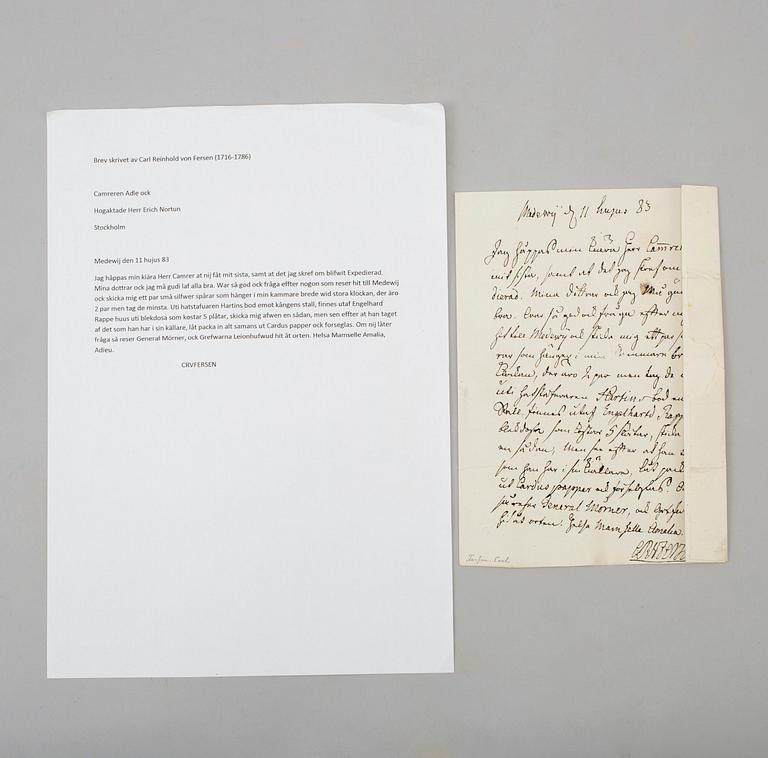 Brev skrivet av Carl Reinhold von Fersen (1716-1786)
Camreren Adle ock
Hogaktade Herr Erich Nortun
Stockholm
Medewij den 11 hujus 83
Jag håppas min kiära Herr Camrer at nij fåt mit sista, samt at det jag skref om blifwit Expedierad.
Mina dottrar ock jag må gudi laf alla bra. War så god ock fråga effter nogon som reser hit till Medewij
ock skicka mig ett par små silfwer spårar som hänger i min kammare brede wid stora klockan, der äro
2 par men tag de minsta. Uti hatstafuaren Hartins bod emot kångens stall, finnes utaf Engelhard
Rappe huus uti blekdosa som kostar 5 plåtar, skicka mig afwen en sådan, men sen effter at han taget
af det som han har i sin källare, låt packa in alt samans ut Cardus papper ock forseglas. Om nij låter
fråga så reser General Mörner, ock Grefwarna Leionhufwud hit åt orten. Helsa Mamselle Amalia,
Adieu.
CRVFERSEN
Medewij d 11 hujus 83
Jag håppas min kiära Herr Camrer
mit sista, samt at det jag skref om
dierad. Mina dottrar ock jag må gud
bra. War så god ock fråga effter
hit till Medewij ock skicka mig ett par
rar som hänger i min kammare
klockan, der äro 2 par men tag de
uti hatstafuaren Hartins bod
stall, finnes utaf Engelhard Rapp
blekdosa som kostar 5 plåtar, skicka
en sådan, men sen effter at han
som han har i sin källare, låt pack
ut Cardus papper ock forseglas.
så reser General Mörner, ock
hit åt orten. Helsa Mamselle Amalia